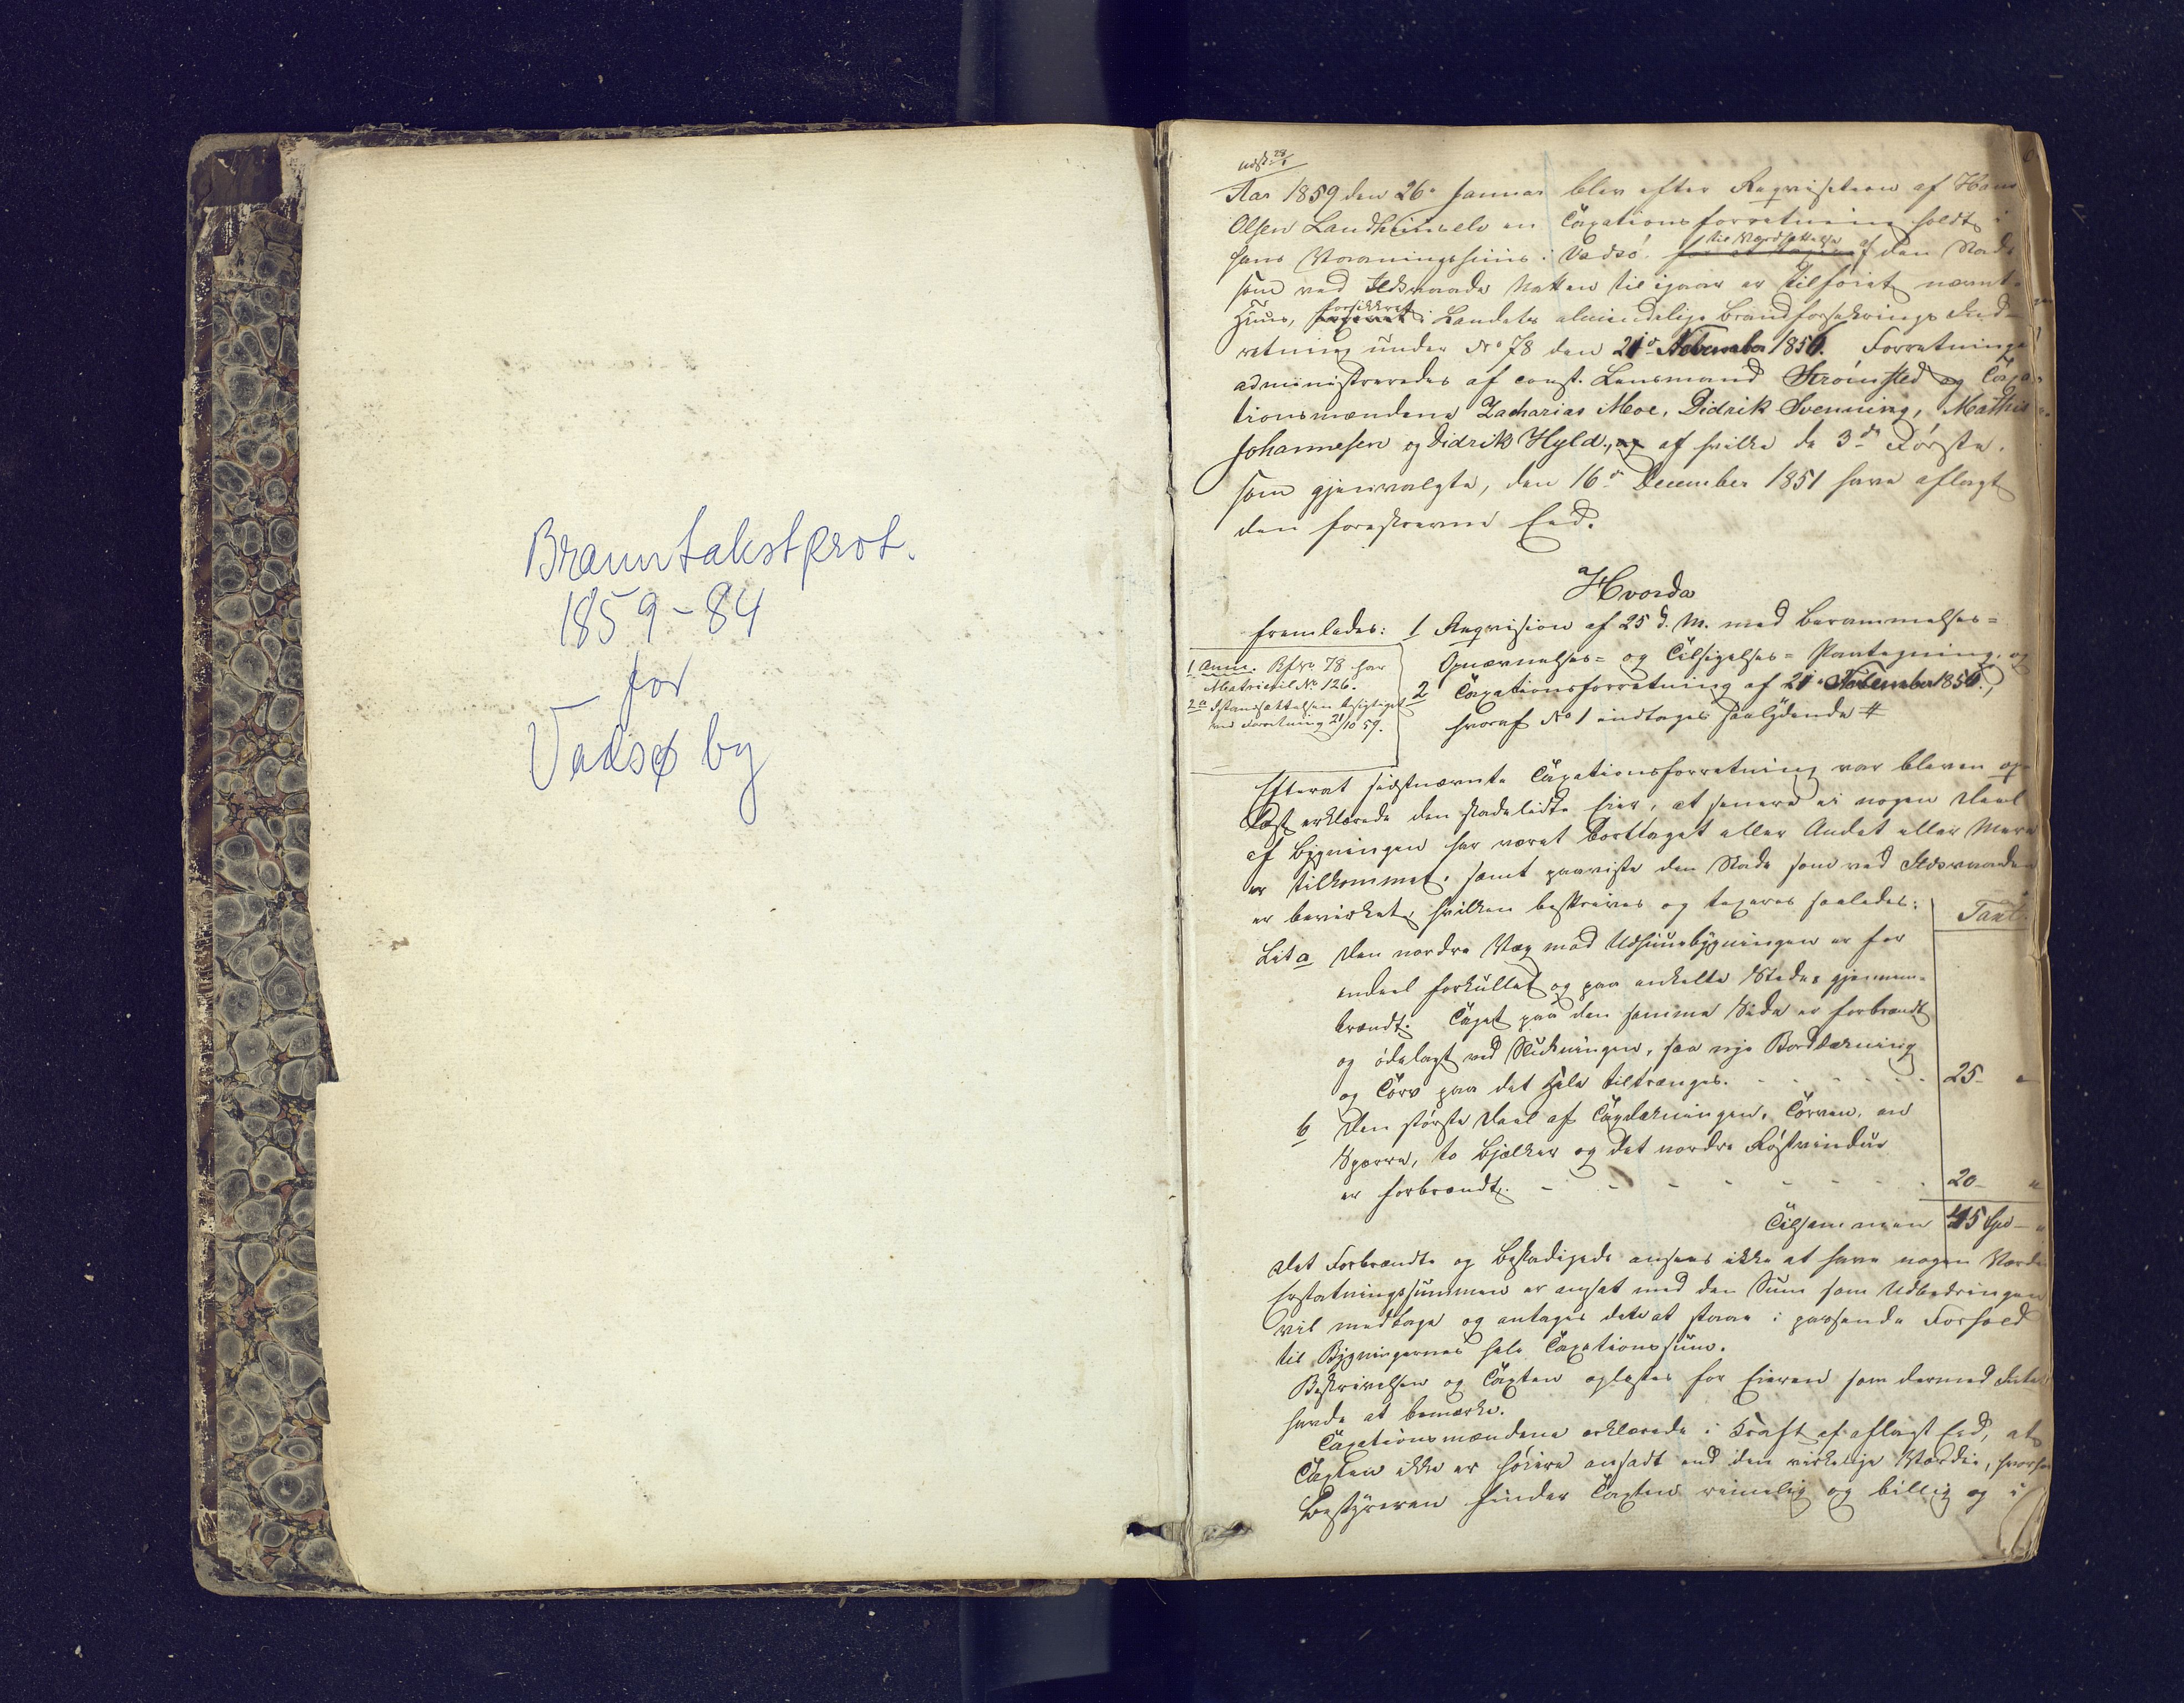 Branntakstprot.
1859-84
for
Vadsø by
Udsk. 28/1
Aar 1859 den 26de Januar blev efter Reqvisition af Hans
Olsen en Taxationsforretning holdt i
hans Vaaningshuus i Vadsø til Værdsættelse af den Skade
som ved Ildsvaade Natten til igaar er tilføiet nævnte
Huus, forsikkret i Landets almindelige Brandforsikrings Ind-
retning under No 78 den 21de November 1856. Forretningen
administreredes af const. Lensmand Strømsted og Taxa-
tionsmændene Zacharias Moe, Didrik Svenning, Mathis
Johannesen og Didrik Hyld, af hvilke de 3de Første,
som gjenvalgte, den 16de December 1851 have aflagt
den foreskrevne Eed.
Hvorda
fremlades: 1 Reqvisition af 25 d. M. med Berammelses-
Opnævnelses- og Tilsigelses- Paategning, og
2 Taxationsforretning af 21de November 1856,
hvoraf No 1 indtages saalydende #
1 Anm. Bfno 78 har
Matricul No 126.
2den Istandsættelsen besigtiget
ved Forretning 21/10 59.
Efterat sidstnævnte Taxationsforretning var bleven op-
læst erklærede den skadelidte Eier, at senere ei nogen Deel
af Bygningen har været borttaget eller Andet eller Mere
er tilkommet, samt paaviste den Skade som ved Ildsvaaden
er bevirket, hvilken beskrives og taxeres saaledes:
Taxt.
Lit a Den nordre Væg mod Udhuusbygningen er for
endeel forkullet og paa enkelte Steder gjennem-
brændt. Taget paa den samme Side er forbrændt
og ødelagt ved Slukningen, saa nye Bordtækning
og Tørv paa det Hele tiltrænges. 25 - "
b Den største Deel af Tagtækningen, Tørven, en
Sperre, to Bjælker og det nordre Røstvindue
er forbrændt. 20 - "
Tilsammen 45 Spd - "
Det Forbrændte og Beskadigede ansees ikke at have nogen Værdi
Erstatningssummen er ansat med den Sum som Udbedringen
vil medtage og antages dette at staae i passende Forhold
til Bygningernes hele Taxationssum.
Beskrivelsen og Taxten oplæstes for Eieren som dermed Intet
havde at bemærke.
Taxationsmændene erklærede i Kraft af aflagt Eed, at
Taxten ikke er høiere ansadt end den virkelige Værdie, hvorhos
Bestyreren finder Taxten rimelig og billig og i